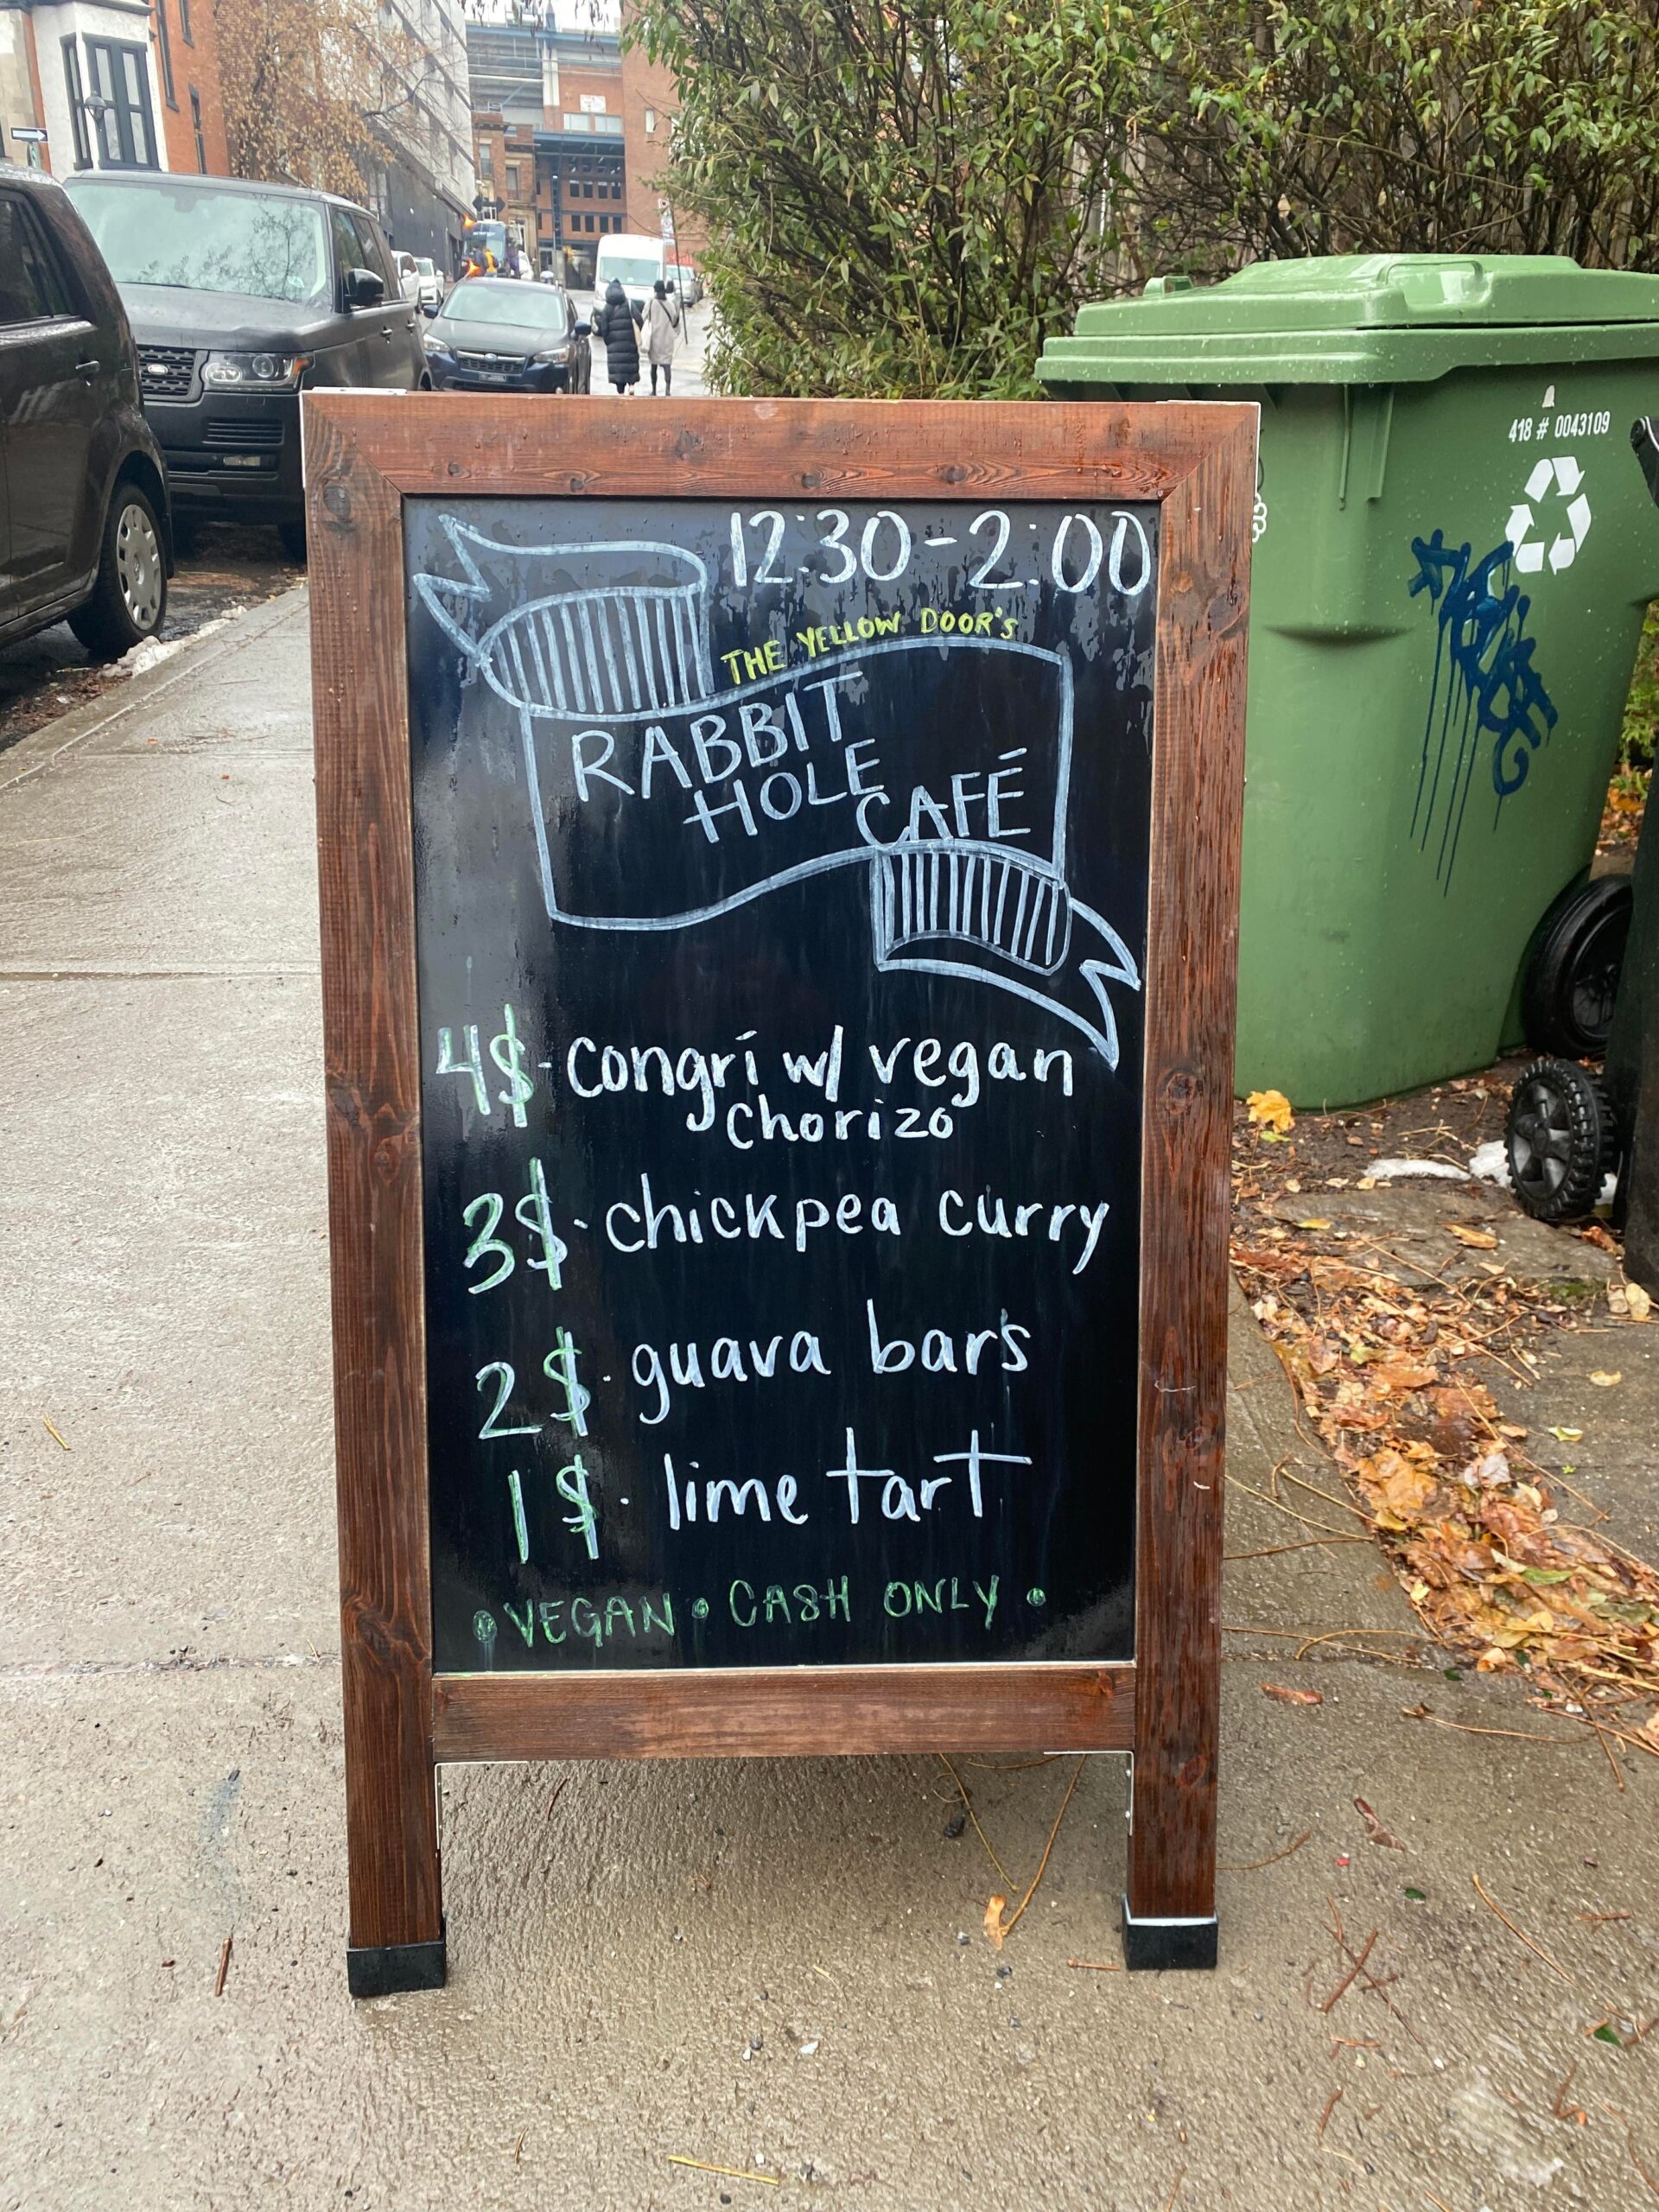 12:30-2:00
THE YELLOW DOOR'S
RABBIT
HOLE
CAFÉ
4$-congrí w/ vegan
chorizo
3$-chickpea curry
2$·guava bars
1$·lime tart
•VEGAN•CASH ONLY•
418 # 0043109